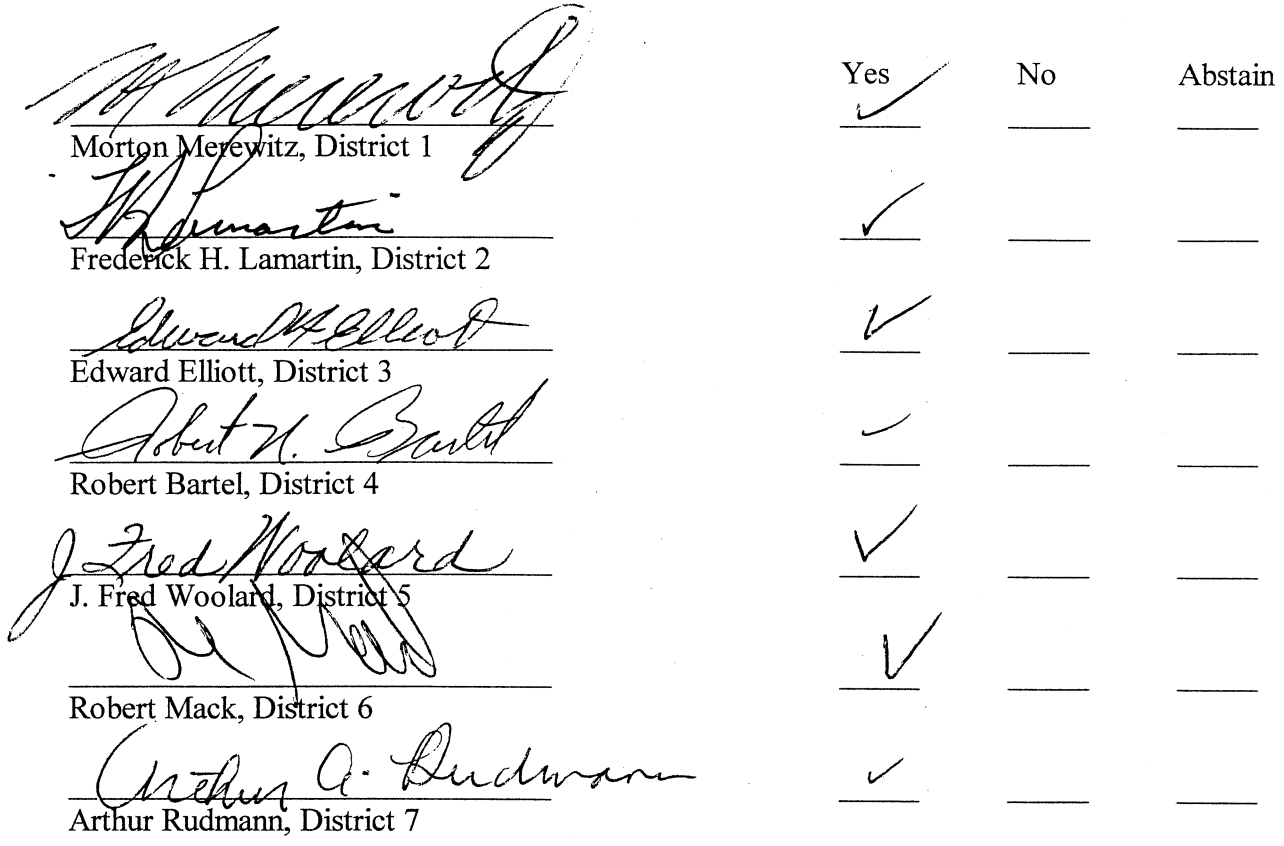 Yes No Abstain
M Merewitz
Morton Merewitz, District 1
Lamartin
Frederick H. Lamartin, District 2
Edward H Elliott
Edward Elliott, District 3
Robert N. Bartel
Robert Bartel, District 4
J Fred Woolard
J. Fred Woolard, District 5
Robert Mack, District 6
Arthur A. Rudmann
Arthur Rudmann, District 7